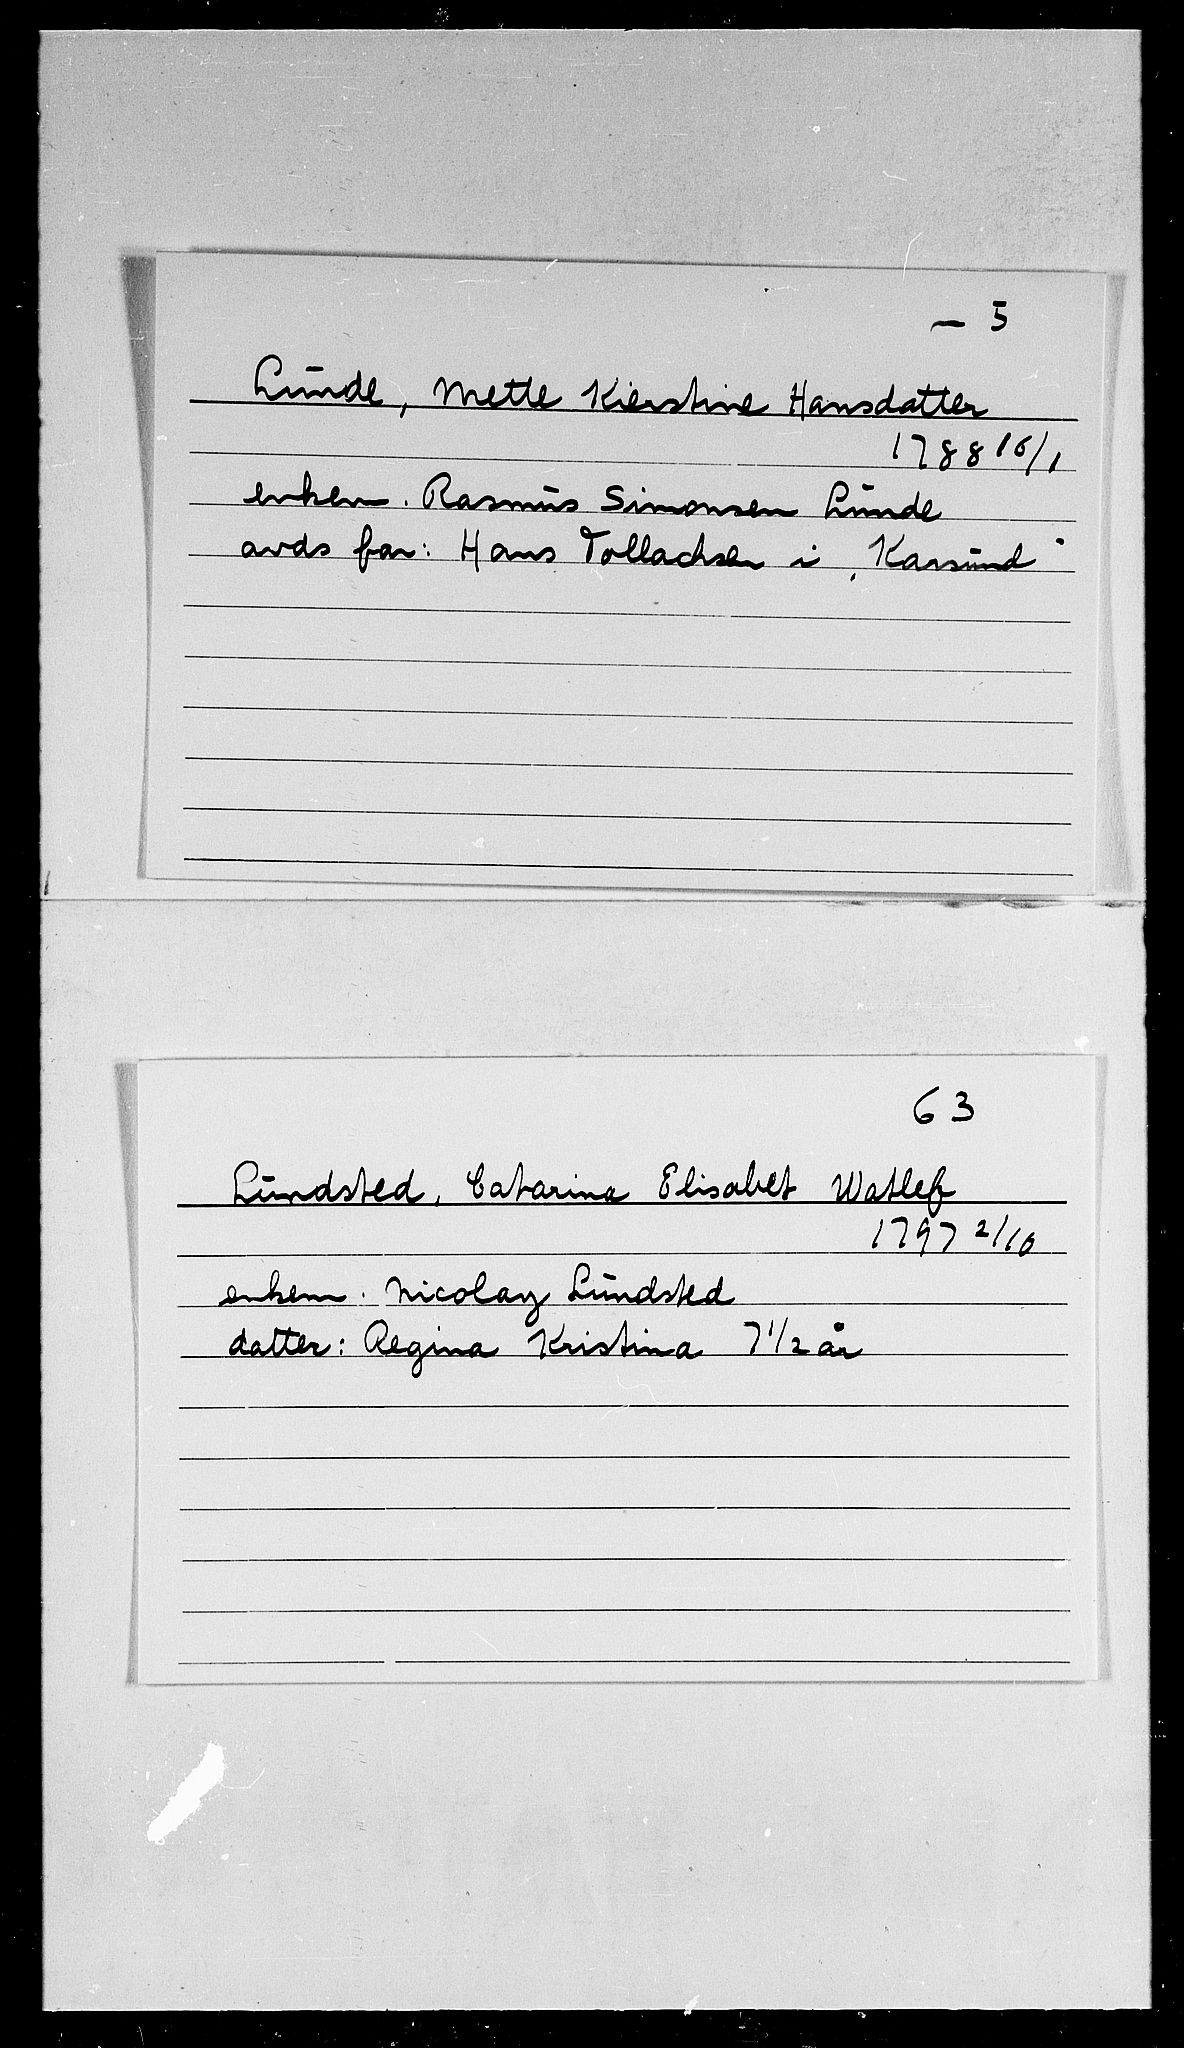 — 5
Lunde, Mette Kierstine Hansdatter
1788 16/1
enkem. Rasmus Simonsen Lunde
avds far: Hans Tollachsen i „Karsund"
63
Lundsted, Catarina Elisabet Watlef
1797 2/10
enkem. Nicolay Lundsted
datter: Regina Kristina 7 1/2 år